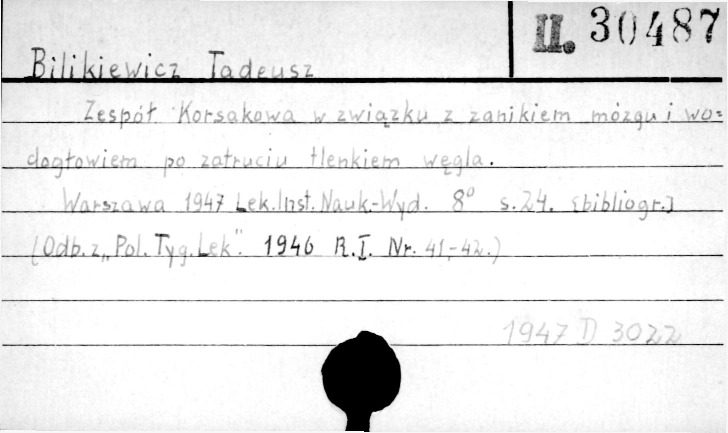 II. 30487
Bilikiewicz Tadeusz
Zespół Korsakowa w związku z zanikiem mózgu i wo=
dogłowiem po zatruciu tlenkiem węgla.
Warszawa 1947 Lek.Inst.Nauk.-Wyd. 8° s.24. [bibliogr.]
(Odb. z „Pol. Tyg. Lek". 1946 R.I. Nr. 41-42.)
1947 D 3022